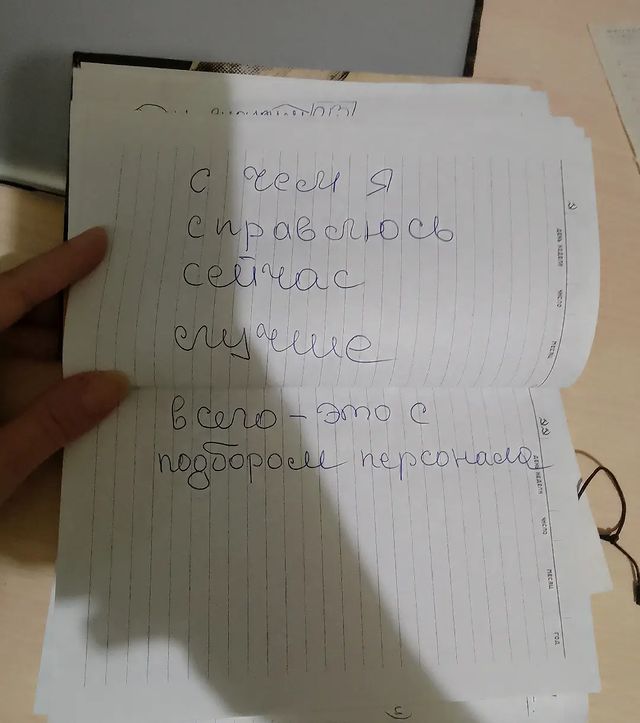 с чем я
справлюсь
сейчас
лучше
всего – это с
подбором персонала
день недели
число
месяц
день недели
число
месяц
год